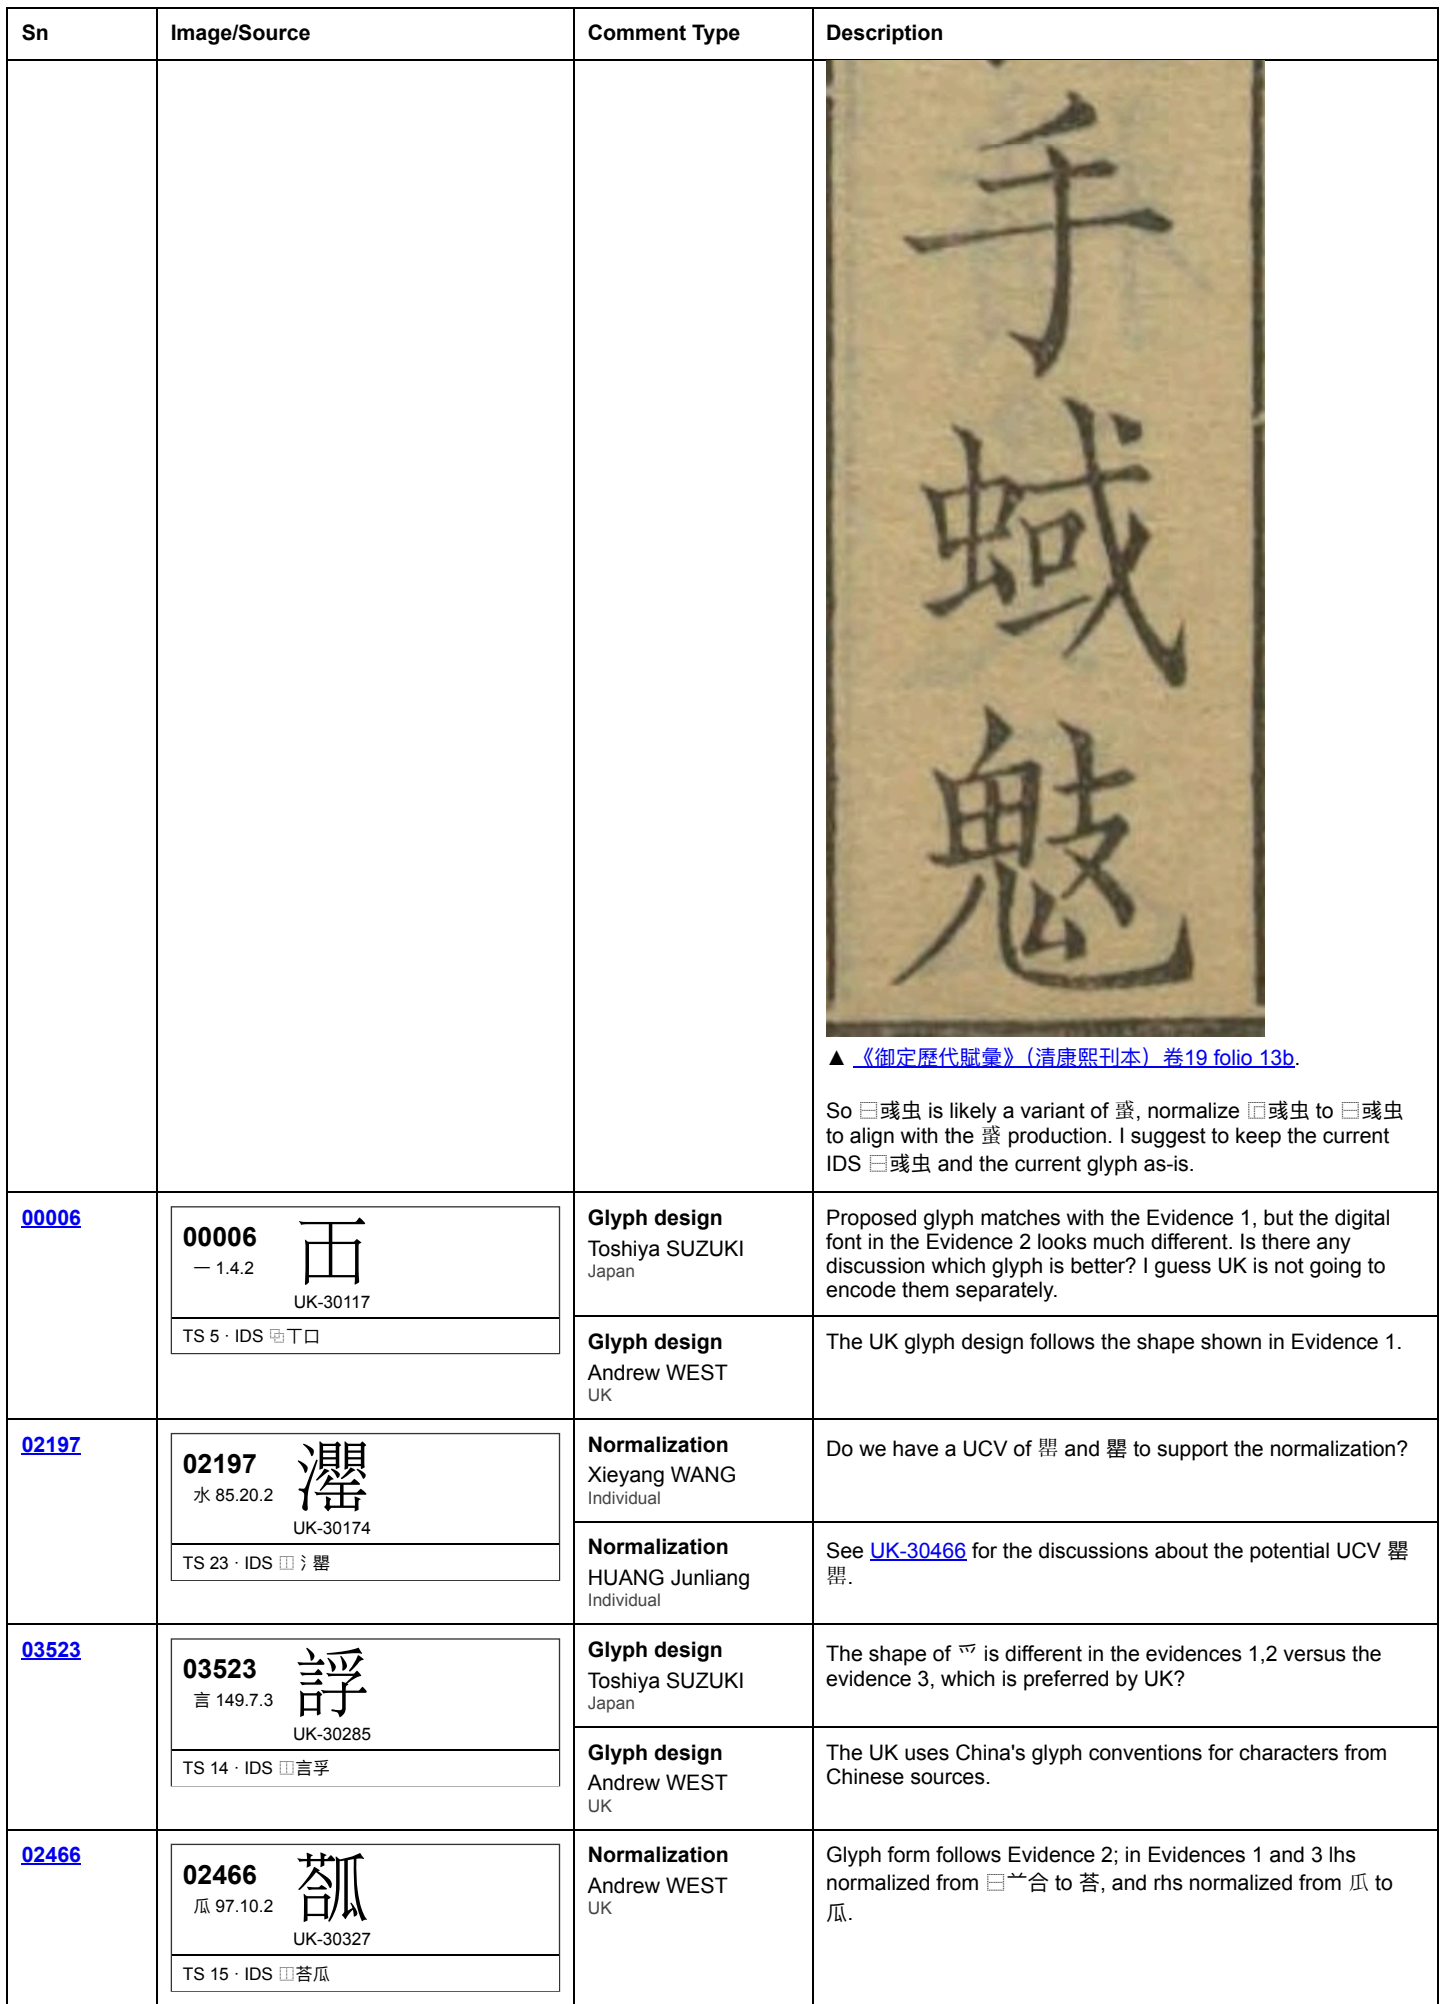 Sn Image/Source Comment Type Description
手
蜮
鬾
▲ 《御定歷代賦彙》（清康熙刊本）卷19 folio 13b.
So ⿱彧虫 is likely a variant of 蜮, normalize ⿸彧虫 to ⿱彧虫
to align with the production. I suggest to keep the current
IDS ⿱彧虫 and the current glyph as-is.
00006
00006
一 1.4.2
UK-30117
TS 5 · IDS ⿻丅口
Glyph design
Toshiya SUZUKI
Japan
Proposed glyph matches with the Evidence 1, but the digital
font in the Evidence 2 looks much different. Is there any
discussion which glyph is better? I guess UK is not going to
encode them separately.
Glyph design
Andrew WEST
UK
The UK glyph design follows the shape shown in Evidence 1.
02197
02197
水 85.20.2
UK-30174
TS 23 · IDS ⿰氵罌
Normalization
Xieyang WANG
Individual
Do we have a UCV of and 罌 to support the normalization?
Normalization
HUANG Junliang
Individual
See UK-30466 for the discussions about the potential UCV 罌
03523
03523
言 149.7.3
UK-30285
TS 14 · IDS ⿰言孚
Glyph design
Toshiya SUZUKI
Japan
The shape of 爫 is different in the evidences 1,2 versus the
evidence 3, which is preferred by UK?
Glyph design
Andrew WEST
UK
The UK uses China's glyph conventions for characters from
Chinese sources.
02466
02466
瓜 97.10.2
UK-30327
TS 15 · IDS ⿰荅瓜
Normalization
Andrew WEST
UK
Glyph form follows Evidence 2; in Evidences 1 and 3 lhs
normalized from ⿱䒑合 to 荅, and rhs normalized from 𤓰 to
瓜.